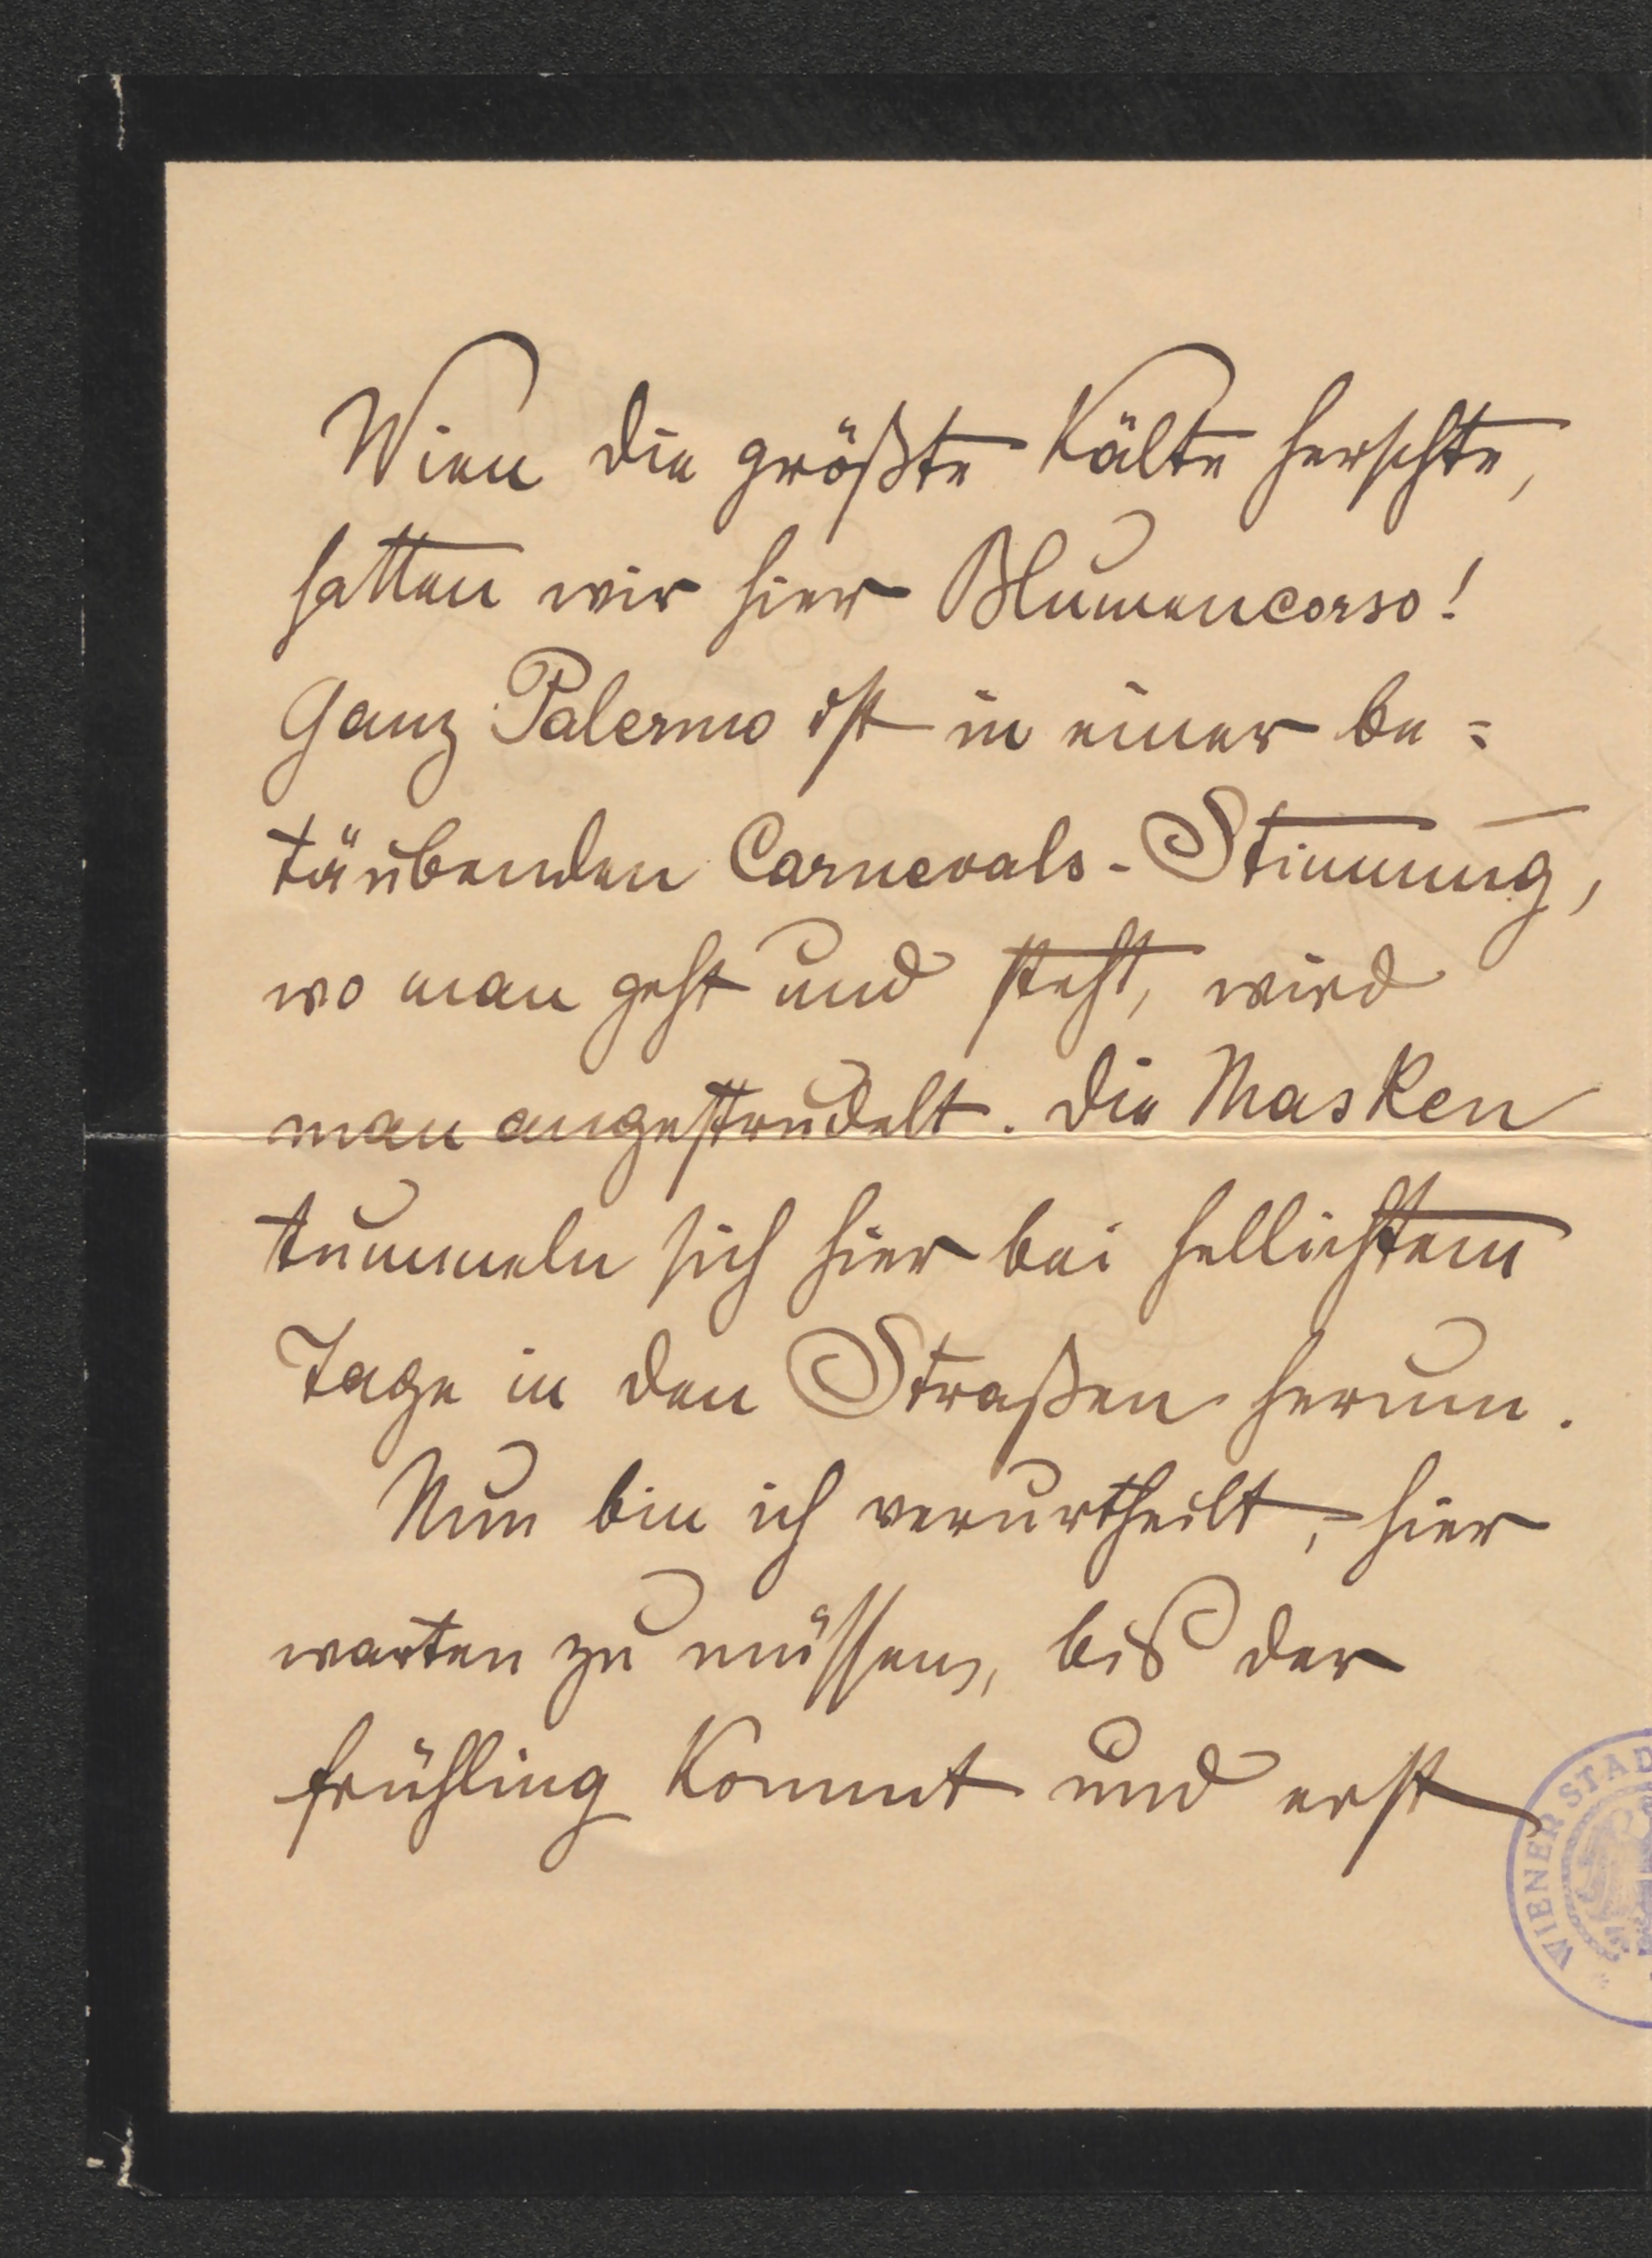 Wien die größte Kälte herschte,
hatten wir hier Blumencorso!
Ganz Palermo ist in einer be=
täubenden Carnevals-Stimmung,
wo man geht und steht, wird
man angestrudelt. Die Masken
tummeln sich hier bei hellichstem
Tage in den Straßen herum.
Nun bin ich verurtheilt, hier
warten zu müssen, bis der
Frühling kommt und erst
WIENER STAD